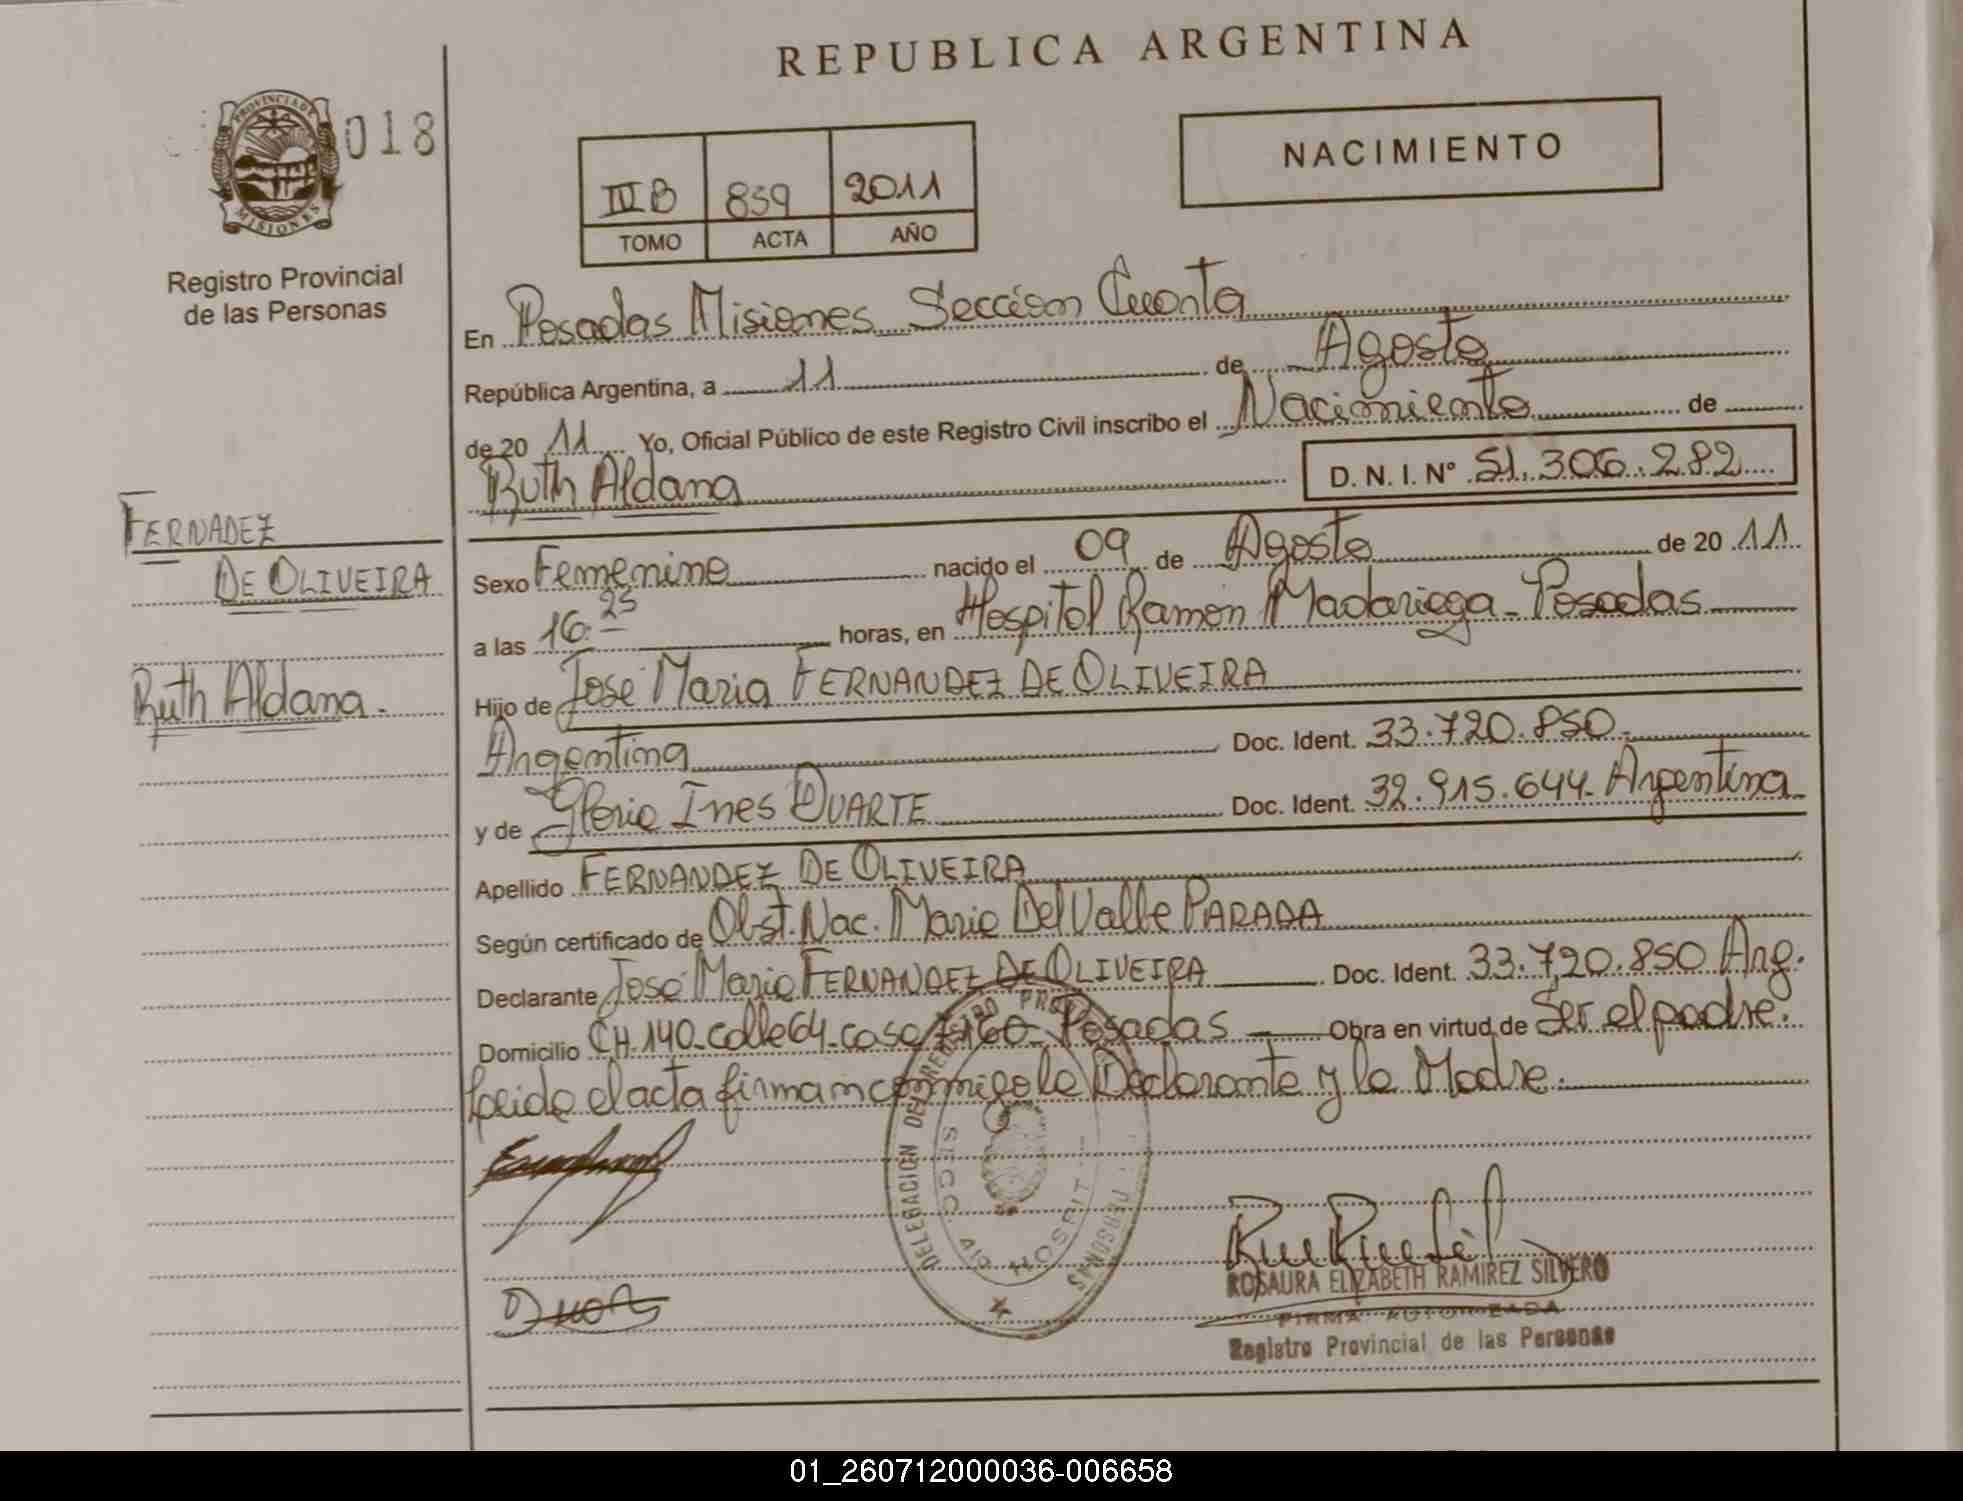 REPUBLICA ARGENTINA
PROVINCIA DE
MISIONES
018
Registro Provincial
de las Personas
III B 859 2011
TOMO ACTA AÑO
NACIMIENTO
En Posadas Misiones Sección Cuarta
República Argentina, a 11 de Agosto
de 20 11 Yo, Oficial Público de este Registro Civil inscribo el Nacimiento de
Ruth Aldana D. N. I. Nº 51.306.282
FERNADEZ
DE OLIVEIRA
Ruth Aldana.
Sexo Femenino nacido el 09 de Agosto de 20 11
a las 16:25 horas, en Hospital Ramón Madariaga - Posadas
Hijo de José Maria FERNANDEZ DE OLIVEIRA
Argentina Doc. Ident. 33.720.850.
y de Gloria Ines DUARTE Doc. Ident. 32.915.644. Argentina
Apellido FERNANDEZ DE OLIVEIRA
Según certificado de Obst. Nac. Maria Del Valle PARADA
Declarante José Maria FERNANDEZ DE OLIVEIRA Doc. Ident. 33.720.850 Arg.
Domicilio CH.140-calle 64-casa 7160- Posadas Obra en virtud de Ser el padre.
Leida el acta firman conmigo la Declarante y la Madre.
DELEGACION DEL REGISTRO PERSONAS
SECC. HOSPIT
ROSAURA ELIZABETH RAMIREZ SILVERO
FIRMA AUTORIZADA
Registro Provincial de las Personas
01_260712000036-006658